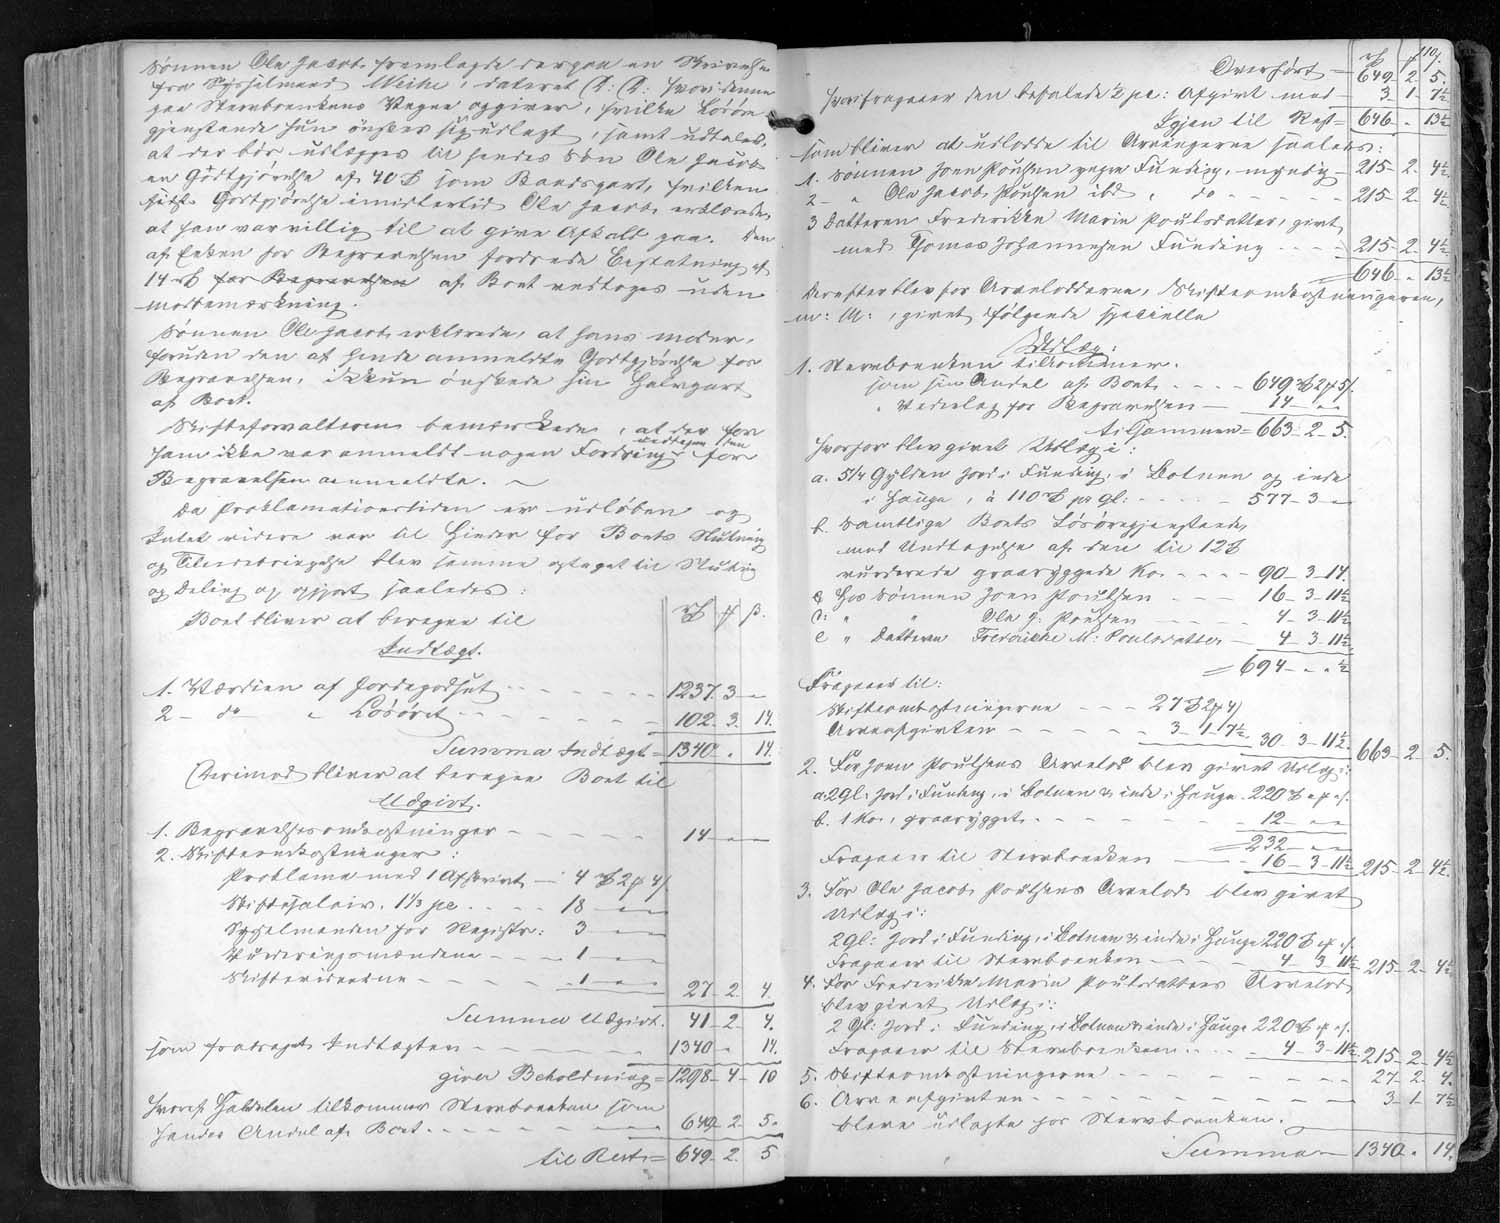 Sønnen Ole Jacob fremlagde derpaa en Skrivelse
fra Sysselmand Weihe, dateret D: D: hvori denne
paa Stervboenkens Vegne opgiver, hvilke Løsøre
gjenstande hun ønsker sig udlagt, samt udtaler,
at der bør udlægges til hendes Søn Ole Jacob
en Godtgjørelse af 40 rd som Baadsgart, hvilken
sidste Godtgjørelse imidlertid Ole Jacob erklærede,
at han var villig til at give Afkald paa. Den
af Enken for Begravelsen fordrede Erstatning af
14 rd for Begravelsen af Boet vedtoges uden
modbemærkning.
Sønnen Ole Jacob erklærede, at hans moder,
foruden den af hende anmeldte Godtgjørelse for
Begravelsen, ikkun ønskede sin Halvpart
af Boet.
Skifteforvalteren bemærkede, at der for
ham ikke var anmeldt nogen Fordring undtagen den for
Begravelsen anmeldte.
Da Proklamationstiden er udløben og
Intet videre var til Hinder for Boets Slutning
og Tilendebringelse blev samme optaget til Slutning
og Deling og opgjort saaledes:
Boet bliver at beregne til rd p s.
Indtægt.
1. Værdien af Jordegodset 1237. 3 -
2 - do - " Løsøret 102. 3. 14.
Summa Indtægt = 1340 - . 14.
Derimod bliver at beregne Boet til
Udgivt.
1. Begravelsesomkostninger 14 - -
2. Skifteomkostninger:
Proklama med 1 Afskrivt 4 rd 2 p 4 s
Skiftesalair. 1 1/3 pc 18 - -
Sysselmanden for Registr: 3 - -
Vurderingsmændene 1 - -
Skiftevidnerne 1 - - 27. 2. 4.
Summa Udgivt. 41 - 2 - 4.
som fradraget Indtægten 1340 - 14.
giver Beholdning = 1298 - 4 - 10
hvoraf Halvdelen tilkommer Stervboenken som
hendes Andel af Boet 649 2. 5.
til Rest = 649 - 2. 5
110/.
rd p s.
Overført = 649 2. 5.
hvorfragaaer den befalede ½ pc: Afgivt med 3 - 1 - 7½
Igjen til Rest = 646 - . 13½
som bliver at udlodde til Arvingerne saaledes:
1. Sønnen Joen Poulsen paa Funding, myndig 215 - 2. 4½
2 - " Ole Jacob Poulsen ibd, do 215 - 2. 4½
3 Datteren Frederikke Marie Poulsdatter, givt
med Thomas Johannesen Funding 215 - 2 - 4½
= 646 - . 13½
Derefter blev for Arvelodderne, Skifteomkostningerne,
m: M:, givet følgende specielle
Udlæg:
1. Stervboenken tilkommer.
som sin Andel af Boet 649 rd 2 p 5 s.
" Vederlag for Begravelsen 14 - -
tilsammen = 663 - 2 - 5.
hvorfor blev givet Udlæg i:
a. 5¼ Gylden Jord i Funding, i Botnen og inde
i Hauge, à 110 rd pr gl: 577 - 3 -
b. Samtlige Boets Løsøregjenstande,
med Undtagelse af den til 12 rd
vurderede graaryggede Ko 90 - 3 - 14.
c Hos Sønnen Joen Poulsen 16 - 3 - 11½
d: " " Ole J: Poulsen 4 - 3 - 11½
e " Datteren Frederikke M: Poulsdatter 4 - 3 - 11½
= 694 - . - ½
Fragaaer til:
Skifteomkostningerne 27 rd 2 p 4 s
Arveafgivten 3 - 1 - 7½ 30 - 3 - 11½. 663 - 2 - 5.
2. For Joen Poulsens Arvelod blev givet Udlæg i:
a. 2 gl: Jord i Funding, i Botnen & inde i Hauge 220 rd " p " s.
b. 1 Ko, graarygget 12 - -
= 232 - -
Fragaaer til Stervboenken 16 - 3 - 11½ 215 - 2 - 4½.
3. For Ole Jacob Poulsens Arvelod blev givet
Udlæg i:
2 gl: Jord i Funding, i Botnen & inde i Hauge 220 rd " p " s.
Fragaaer til Stervboenken 4 - 3 11½ 215 - 2 - 4½
4. For Frederikke Marie Poulsdatters Arvelod
blev givet Udlæg i:
2 Gl: Jord i Funding, i Botnen & inde i Hauge 220 rd " p " s.
Fragaaer til Stervboenken 4 - 3 - 11½ 215 - 2 - 4½
5. Skifteomkostningerne 27 - 2 - 4.
6. Arveafgivten 3 - 1 - 7½
bleve udlagte hos Stervboenken.
Summa - 1340 . 14.